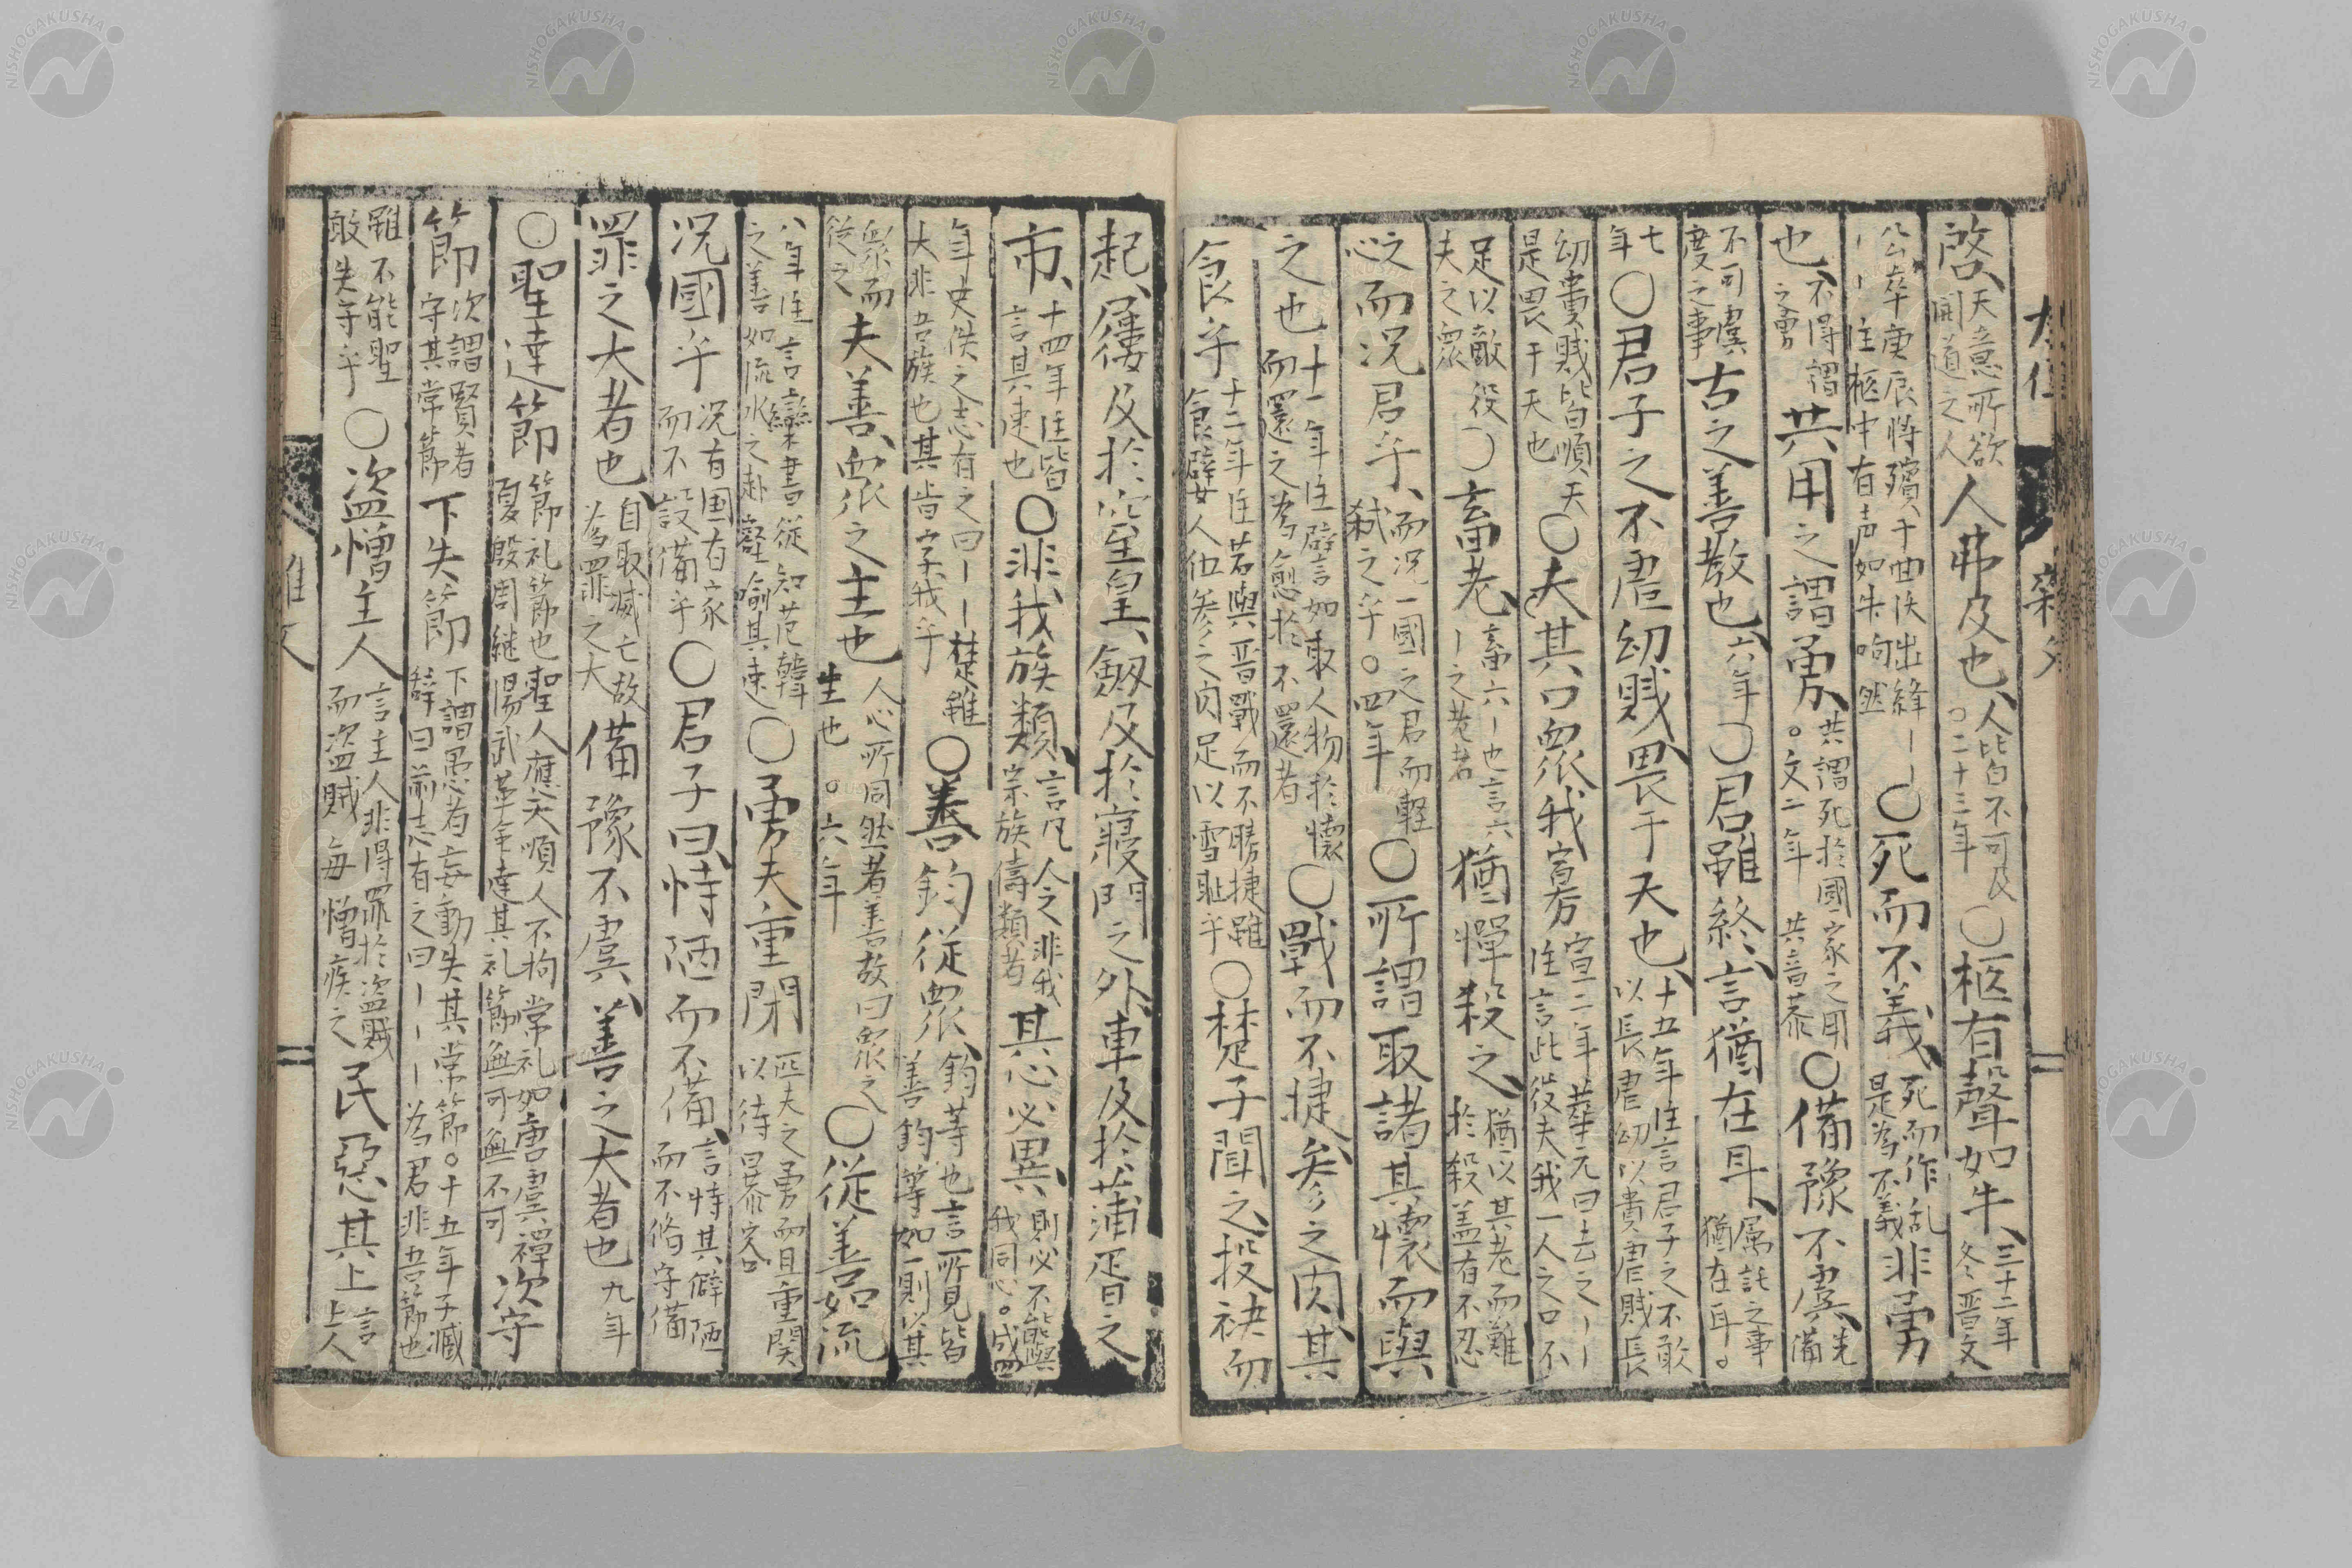 啓、天意所欲開道之人人弗及也、人皆不可及○二十三年○柩有聲如牛、三十二年冬晋文
公卒庚辰将殯于曲沃出絳——注柩中有声如牛呴然○死而不義、死而作乱是為不義非勇
也、不得謂之勇共用之謂勇、共謂死於國家之用○文二年共音恭○備豫不虞、先備
不可虞度之事古之善教也、六年○君雖終、言猶在耳、属託之事猶在耳○
七年○君子之不虐幼賎畏于天也、十五年注言君子之不敢以長虐幼以貴虐賎長
幼貴賎皆順天是畏于天也○夫其口衆我寡宣二年華元曰去之——注言此役夫我一人之口不
足以敵役夫之衆○畜老、畜六—也言六—之老者猶憚殺之、猶以其老而難於殺盖有不忍
之心而况君乎、而况一國之君而軽弑之乎○四年○所謂取諸其懷而與
之也十一年注譬言如取人物於懷而還之為愈於不還者○戰而不捷参之肉、其
食乎十二年注若與晋戰而不勝捷雖食嬖人伍参之肉足以雪恥乎○楚子聞之、投袂而
起、屨及於窒皇、劔及於寝門之外、車及於蒲胥之
市、十四年注皆言其速也○非我族類、言凡人之非我宗族儔類者其心必異、則必不能與我同心○成四
年史佚之志有之曰——楚雖大非吾族也其肯字我乎○善鈞従衆、鈞等也言所見皆善鈞等如一則以其
衆而従之夫善、衆之主也人心所同然者善故曰衆之主也○六年○従善如流
八年注言欒書従知范韓之善如流水之赴壑喻其速○勇夫重閉匹夫之勇而且重関以待暴客
况國乎况有国有家而不設備乎○君子曰恃陋而不備、言恃其僻陋而不脩守備
罪之大者也自取滅亡故為罪之大備豫不虞、善之大者也九年
○聖達節節礼節也聖人應天順人不拘常礼如唐虞禅夏殷周継湯武革命達其礼節無可無不可次守
節次謂賢者守其常節下失節下謂愚者妄動失其常節○十五年子臧辭曰前志有之曰———為君非吾節也
雖不能聖敢失守乎○盗憎主人言主人非得罪於盗賊而盗賊每憎疾之民惡其上言上人